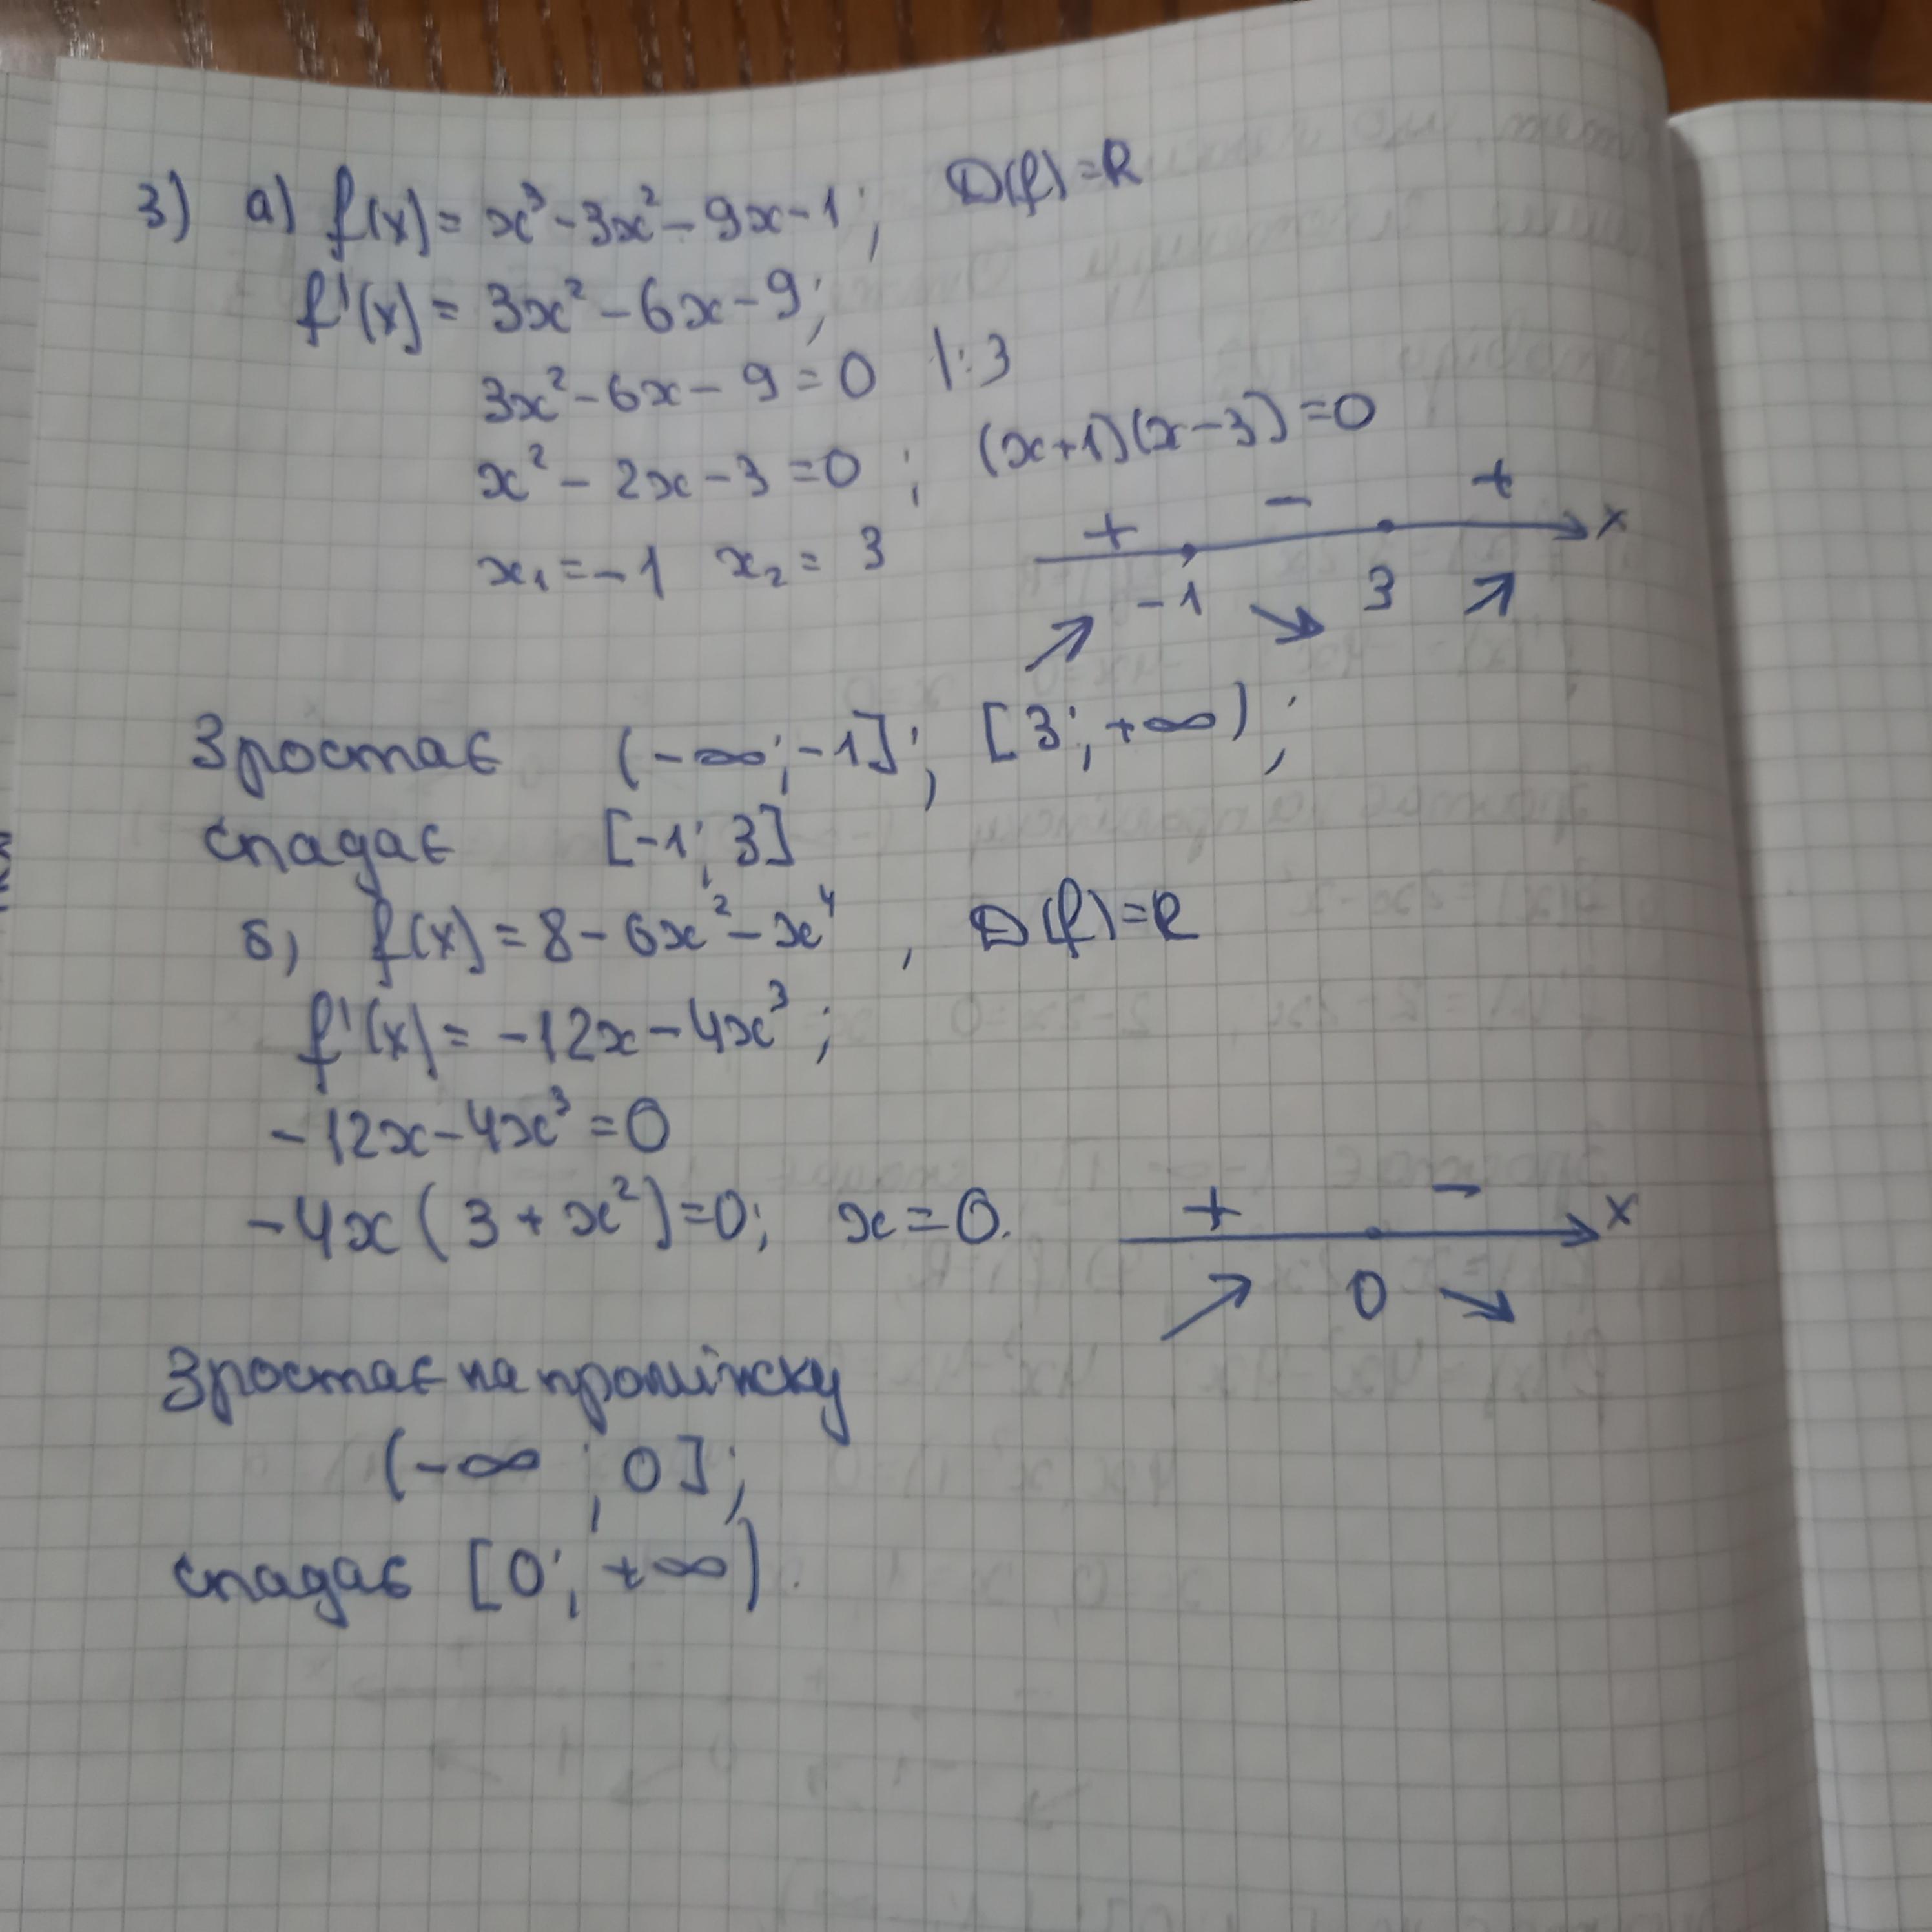 3) а) f(x) = x³ - 3x² - 9x - 1; D(f) = R
f'(x) = 3x² - 6x - 9;
3x² - 6x - 9 = 0 |:3
x² - 2x - 3 = 0; (x+1)(x-3) = 0
+ - + x
x₁ = -1 x₂ = 3
-1 3
Зростає (-∞; -1]; [3; +∞);
спадає [-1; 3]
б) f(x) = 8 - 6x² - x⁴, D(f) = R
f'(x) = -12x - 4x³;
-12x - 4x³ = 0
-4x(3 + x²) = 0; x = 0.
+ - x
0
Зростає на проміжку
(-∞; 0];
спадає [0; +∞).